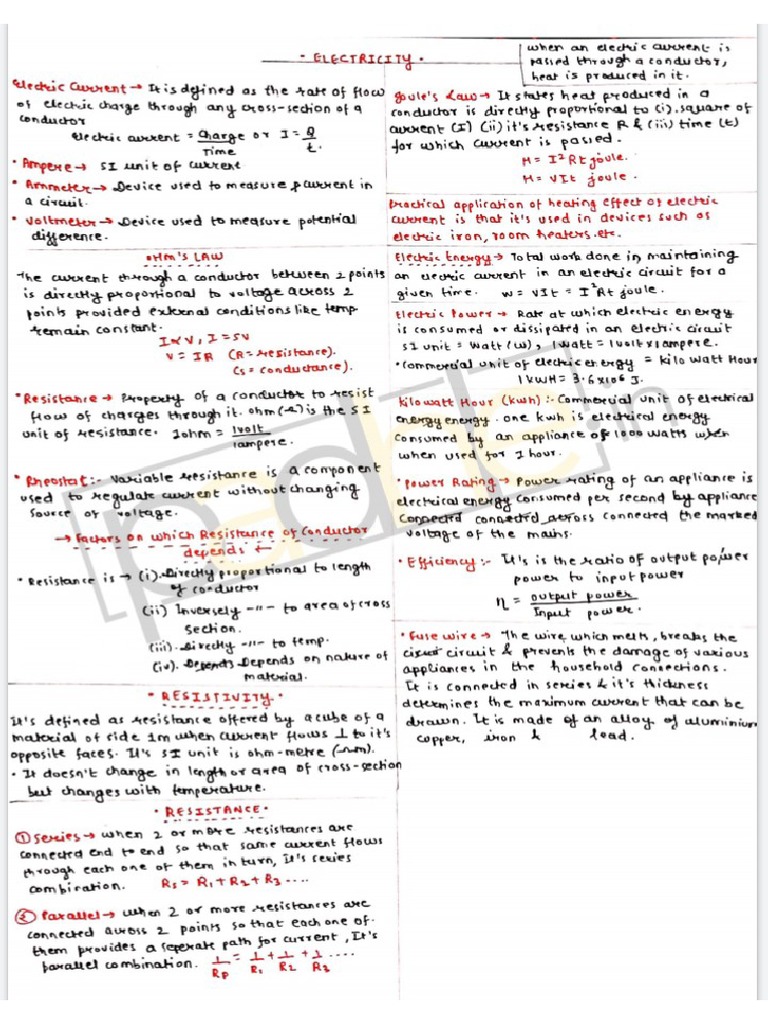 • ELECTRICITY •
Electric Current → It is defined as the rate of flow
of electric charge through any cross-section of a
conductor
Electric current = Charge / Time or I = Q / t.
• Ampere → SI unit of current
• Ammeter → Device used to measure current in
a circuit.
• Voltmeter → Device used to measure potential
difference.
OHM'S LAW
The current through a conductor between 2 points
is directly proportional to voltage across 2
points provided external conditions like temp.
remain constant.
I ∝ V, I = SV
V = IR (R = resistance).
(S = conductance).
• Resistance → Property of a conductor to resist
flow of charges through it. ohm (Ω) is the SI
unit of resistance. 1 ohm = 1 volt / 1 ampere.
• Rheostat :- Variable resistance is a component
used to regulate current without changing
source of voltage.
→ Factors on which Resistance of Conductor
depends ←
• Resistance is → (i). Directly proportional to length
of conductor
(ii) Inversely -||- to area of cross
section.
(iii). Directly -||- to temp.
(iv). Depends Depends on nature of
material.
• RESISTIVITY •
It's defined as resistance offered by a cube of a
material of side 1m when current flows ⊥ to it's
opposite faces. It's SI unit is ohm-metre (Ωm).
• It doesn't change in length or area of cross-section
but changes with temperature.
• RESISTANCE •
① Series → when 2 or more resistances are
connected end to end so that same current flows
through each one of them in turn, It's series
combination. Rs = R1 + R2 + R3 ....
② Parallel → when 2 or more resistances are
connected across 2 points so that each one of
them provides a seperate path for current, It's
parallel combination. 1/Rp = 1/R1 + 1/R2 + 1/R3 ....
when an electric current is
passed through a conductor,
heat is produced in it.
Joule's Law → It states heat produced in a
conductor is directly proportional to (i). square of
current (I) (ii) it's resistance R & (iii) time (t)
for which current is passed.
H = I²Rt joule.
H = VIt joule.
Practical application of heating effect of electric
current is that it's used in devices such as
electric iron, room heaters. etc.
Electric Energy → Total work done in maintaining
an electric current in an electric circuit for a
given time. w = VIt = I²Rt joule.
Electric Power → Rate at which electric energy
is consumed or dissipated in an electric circuit
SI unit = Watt (w), 1 Watt = 1 volt x 1 ampere.
• Commercial unit of electric energy = kilo Watt Hour
1 KWH = 3.6 x 10⁶ J.
Kilowatt Hour (kwh) :- Commercial unit of electrical
energy energy. one kwh is electrical energy
consumed by an appliance of 1000 watts when
when used for 1 hour.
• Power Rating → Power rating of an appliance is
electrical energy consumed per second by appliance
connected connected across connected the marked
voltage of the mains.
• Efficiency :- It's is the ratio of output power
power to input power
η = output power / Input power.
• Fuse wire → The wire, which melts, breaks the
circuit circuit & prevents the damage of various
appliances in the household connections.
It is connected in series & it's thickness
determines the maximum current that can be
drawn. It is made of an alloy of aluminium
copper, iron & lead.
padhle.in